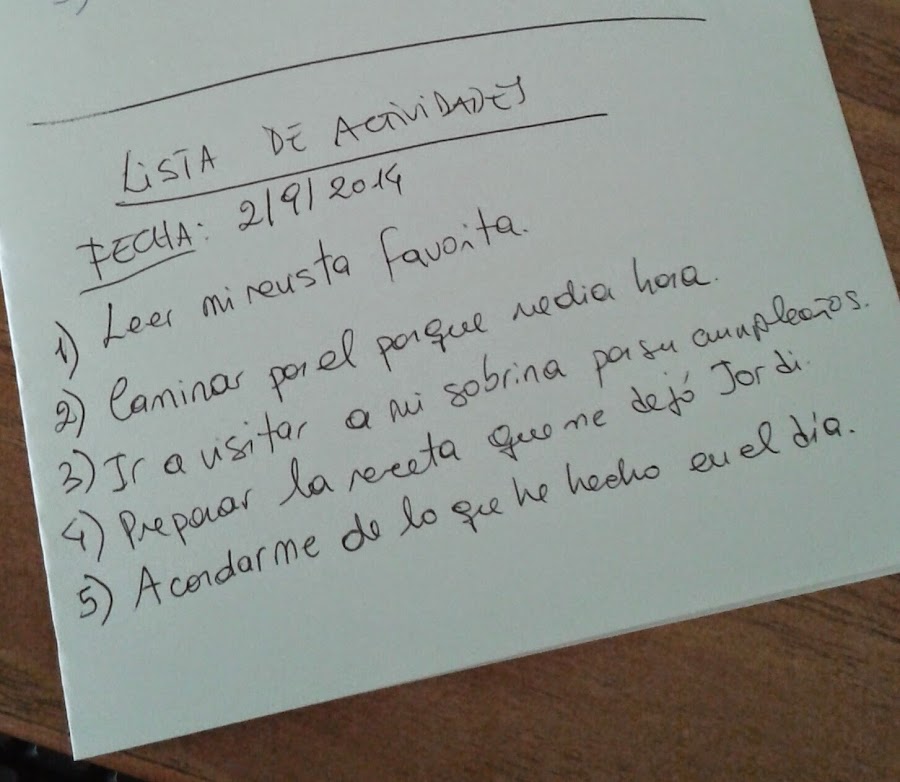 LISTA DE ACTIVIDADES
FECHA: 2/9/2014
1) Leer mi revista favorita.
2) Caminar por el parque media hora.
3) Ir a visitar a mi sobrina por su cumpleaños.
4) Preparar la receta que me dejó Jordi.
5) Acordarme de lo que he hecho en el día.